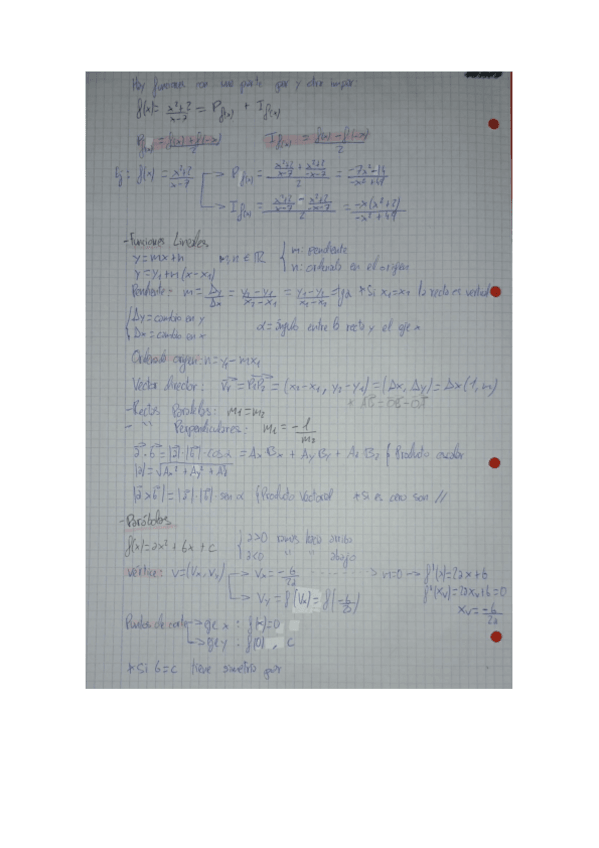 Hay funciones con una parte par y otra impar:
f(x)= (x²+2)/(x-7) = P f(x) + I f(x)
P f(x) = (f(x)+f(-x))/2    I f(x) = (f(x)-f(-x))/2
Ej: f(x)= (x²+2)/(x-7) -> P f(x) = ((x²+2)/(x-7) + (x²+2)/(-x-7))/2 = (-7x²-14)/(-x²+49)
-> I f(x) = ((x²+2)/(x-7) - (x²+2)/(-x-7))/2 = (-x(x²+2))/(-x²+49)
-Funciones Lineales
y=mx+n    m,n ∈ ℝ { m: pendiente
n: ordenada en el origen
y=y₁+m(x-x₁)
Pendiente: m= Δy/Δx = (y₂-y₁)/(x₂-x₁) = (y₂-y₁)/(x₂-x₁) = tg α *Si x₁=x₂ la recta es vertical
{ Δy=cambio en y
Δx=cambio en x    α=ángulo entre la recta y el eje x
Ordenada origen: n=y₁-mx₁
Vector director: = (x₂-x₁, y₂-y₁)=(Δx, Δy)=Δx(1, m)
* AB=OB-OA
-Rectas Paralelas: m₁=m₂
- " Perpendiculares: m₁=-1/m₂
a·b=|a|·|b|·cos α = Ax Bx + Ay By + Az Bz { Producto escalar
|a|=√(Ax²+Ay²+Az²)
|a×b|=|a|·|b|·sen α { Producto Vectorial *Si es cero son //
-Parábolas
f(x)=ax²+bx+c { a>0 ramas hacia arriba
a<0 " " abajo
Vértice: V=(Vx, Vy) -> Vx=-b/2a -> m=0 -> f'(x)=2ax+b
-> Vy=f(Vx)=f(-b/2a)    f'(xv)=2axv+b=0
xv=-b/2a
Puntos de corte -> eje x: f(x)=0
-> eje y: f(0), c
*Si b=c tiene simetría par